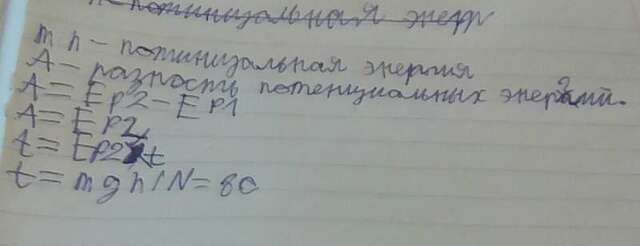 потинизальная энерг
m h - потинизальная энергия
A - разность потенциальных энергий.
A = Ep2 - Ep1
A = Ep2
t = Ep2 t
t = mgh/N = 8с